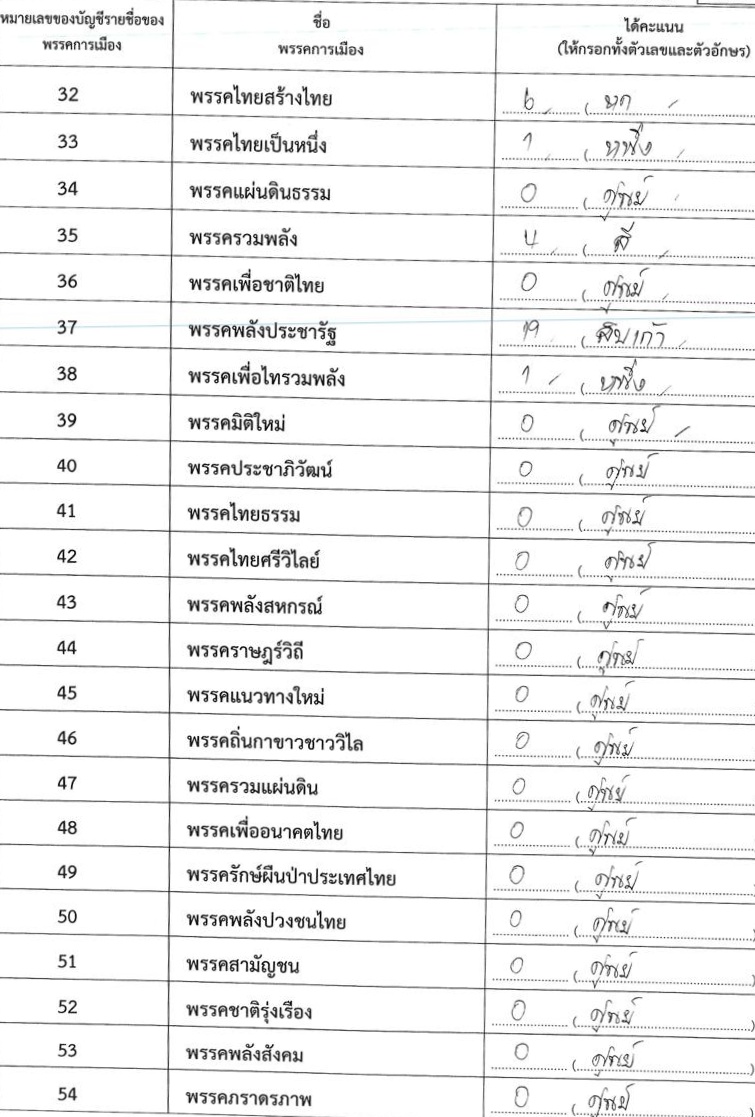 หมายเลขของบัญชีรายชื่อของ ชื่อ ได้คะแนน
พรรคการเมือง พรรคการเมือง (ให้กรอกทั้งตัวเลขและตัวอักษร)
32 พรรคไทยสร้างไทย 6 ( หก
33 พรรคไทยเป็นหนึ่ง 1 ( หนึ่ง
34 พรรคแผ่นดินธรรม 0 ( ศูนย์
35 พรรครวมพลัง 4 ( สี่
36 พรรคเพื่อชาติไทย 0 ( ศูนย์
37 พรรคพลังประชารัฐ 19 ( สิบเก้า
38 พรรคเพื่อไทรวมพลัง 1 ( หนึ่ง
39 พรรคมิติใหม่ 0 ( ศูนย์
40 พรรคประชาภิวัฒน์ 0 ( ศูนย์
41 พรรคไทยธรรม 0 ( ศูนย์
42 พรรคไทยศรีวิไลย์ 0 ( ศูนย์
43 พรรคพลังสหกรณ์ 0 ( ศูนย์
44 พรรคราษฎร์วิถี 0 ( ศูนย์
45 พรรคแนวทางใหม่ 0 ( ศูนย์
46 พรรคถิ่นกาขาวชาววิไล 0 ( ศูนย์
47 พรรครวมแผ่นดิน 0 ( ศูนย์
48 พรรคเพื่ออนาคตไทย 0 ( ศูนย์
49 พรรครักษ์ผืนป่าประเทศไทย 0 ( ศูนย์ )
50 พรรคพลังปวงชนไทย 0 ( ศูนย์ )
51 พรรคสามัญชน 0 ( ศูนย์ )
52 พรรคชาติรุ่งเรือง 0 ( ศูนย์ )
53 พรรคพลังสังคม 0 ( ศูนย์ )
54 พรรคภราดรภาพ 0 ( ศูนย์ )